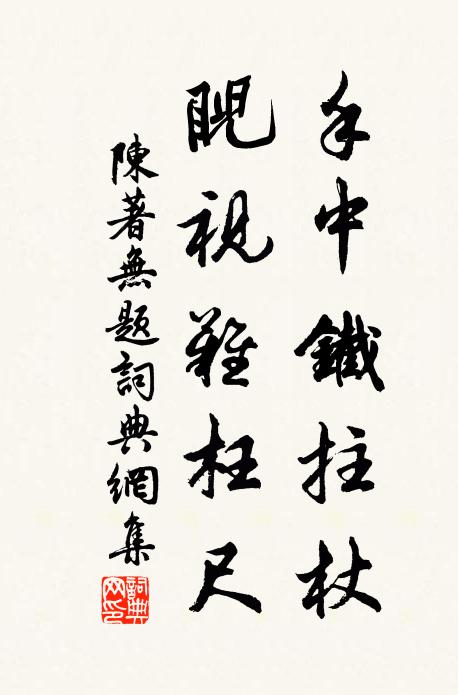 手中鐵拄杖
睨視難枉尺
陳著無題詞典網集
詞典网印